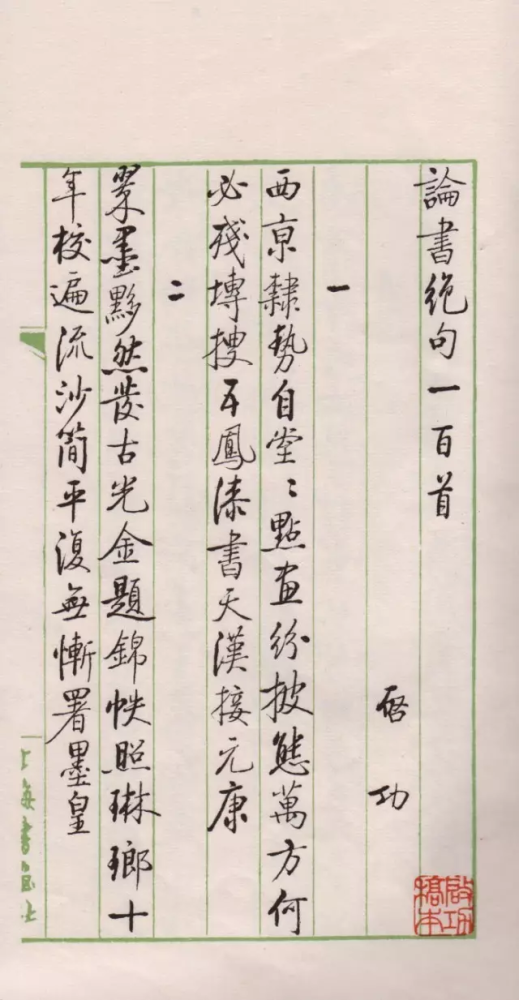 論書絶句一百首
啓功
一
西京隸勢自堂〻點畫紛披態萬方何
必殘塼搜五鳳漆書天漢接元康
二
翠墨黟然發古光金題錦帙照琳瑯十
年校遍流沙簡平復無慚署墨皇
上海書画社
啟功
稿本